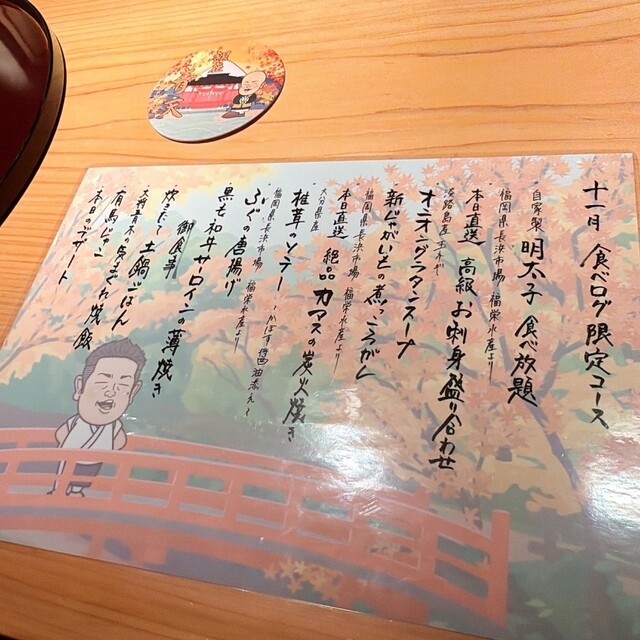 十一月 食べログ限定コース
自家製 明太子 食べ放題
福岡県長浜市場 福栄水産より
本日直送 高級 お刺身盛り合わせ
淡路島産玉ネギ
オニオングラタンスープ
新じゃがいもの煮っころがし
福岡県長浜市場 福栄水産より
本日直送 絶品 カマスの炭火焼き
大分県産
椎茸のソテー 〜かぼす醤油添え〜
福岡県長浜市場 福栄水産より
ふぐの唐揚げ
黒毛和牛サーロインの薄焼き
御食事
炊きたて 土鍋ごはん
大将青木の気まぐれ焼飯
有馬じゃこ
本日のデザート